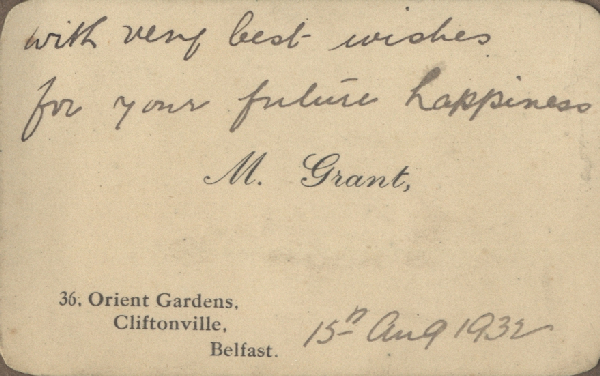 with very best wishes
for your future happiness
M. Grant,
36, Orient Gardens,
Cliftonville,
Belfast.
15th Aug 1932